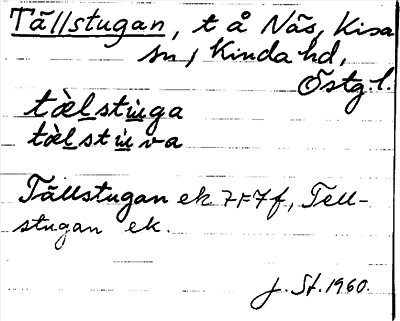 Tällstugan, t å Näs, Kisa
sn, Kinda hd,
Östg.l.
tæ̀lstu̇ga
tæ̀lstu̇va
Tällstugan ek 7F7f, Tell-
stugan ek.
J. St. 1960.